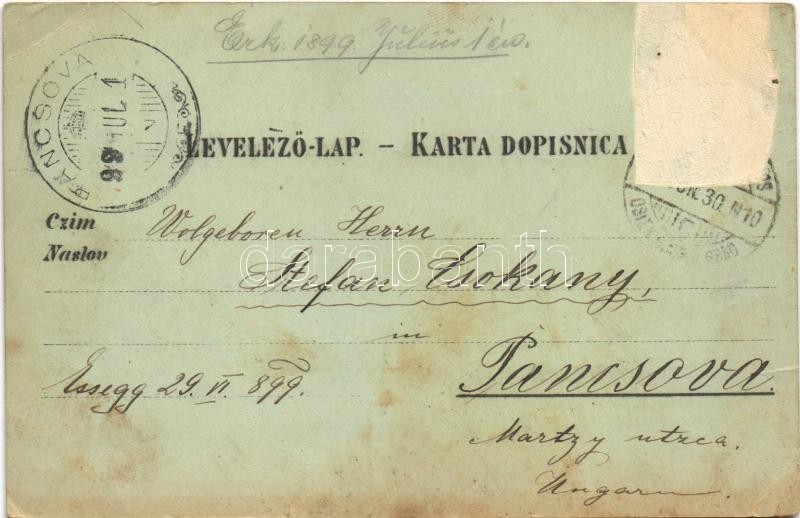 Erk. 1899. Július 1én.
PANCSOVA
99 JUL 1
LEVELEZŐ-LAP. – KARTA DOPISNICA
JUN. 30. N10
Czim
Naslov
Wolgeboren Herrn
Stefan Csokany,
in
Pancsova.
Essegg 29. VI. 899.
Martzy utzca.
Ungarn.
darabanth